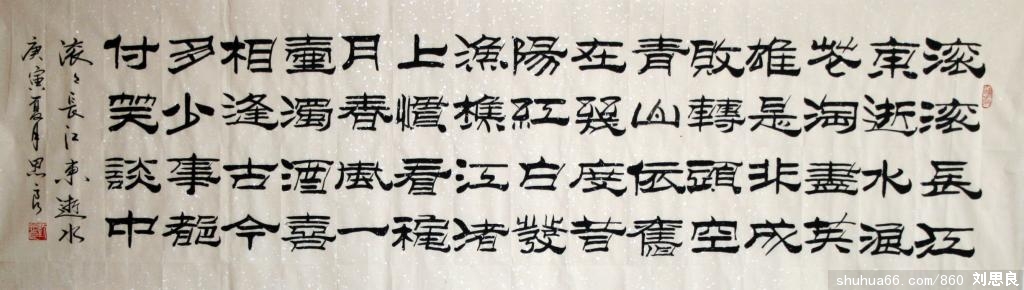 滚滚長江
東逝水浪
花淘盡英
雄是非成
敗轉頭空
青山依舊
在幾度昔
陽紅白發
漁樵江渚
上慣看穐
月春風一
壷濁酒喜
相逢古今
多少事都
付笑談中
滚々長江東逝水
庚寅夏月思良
shuhua66.com/860 刘思良